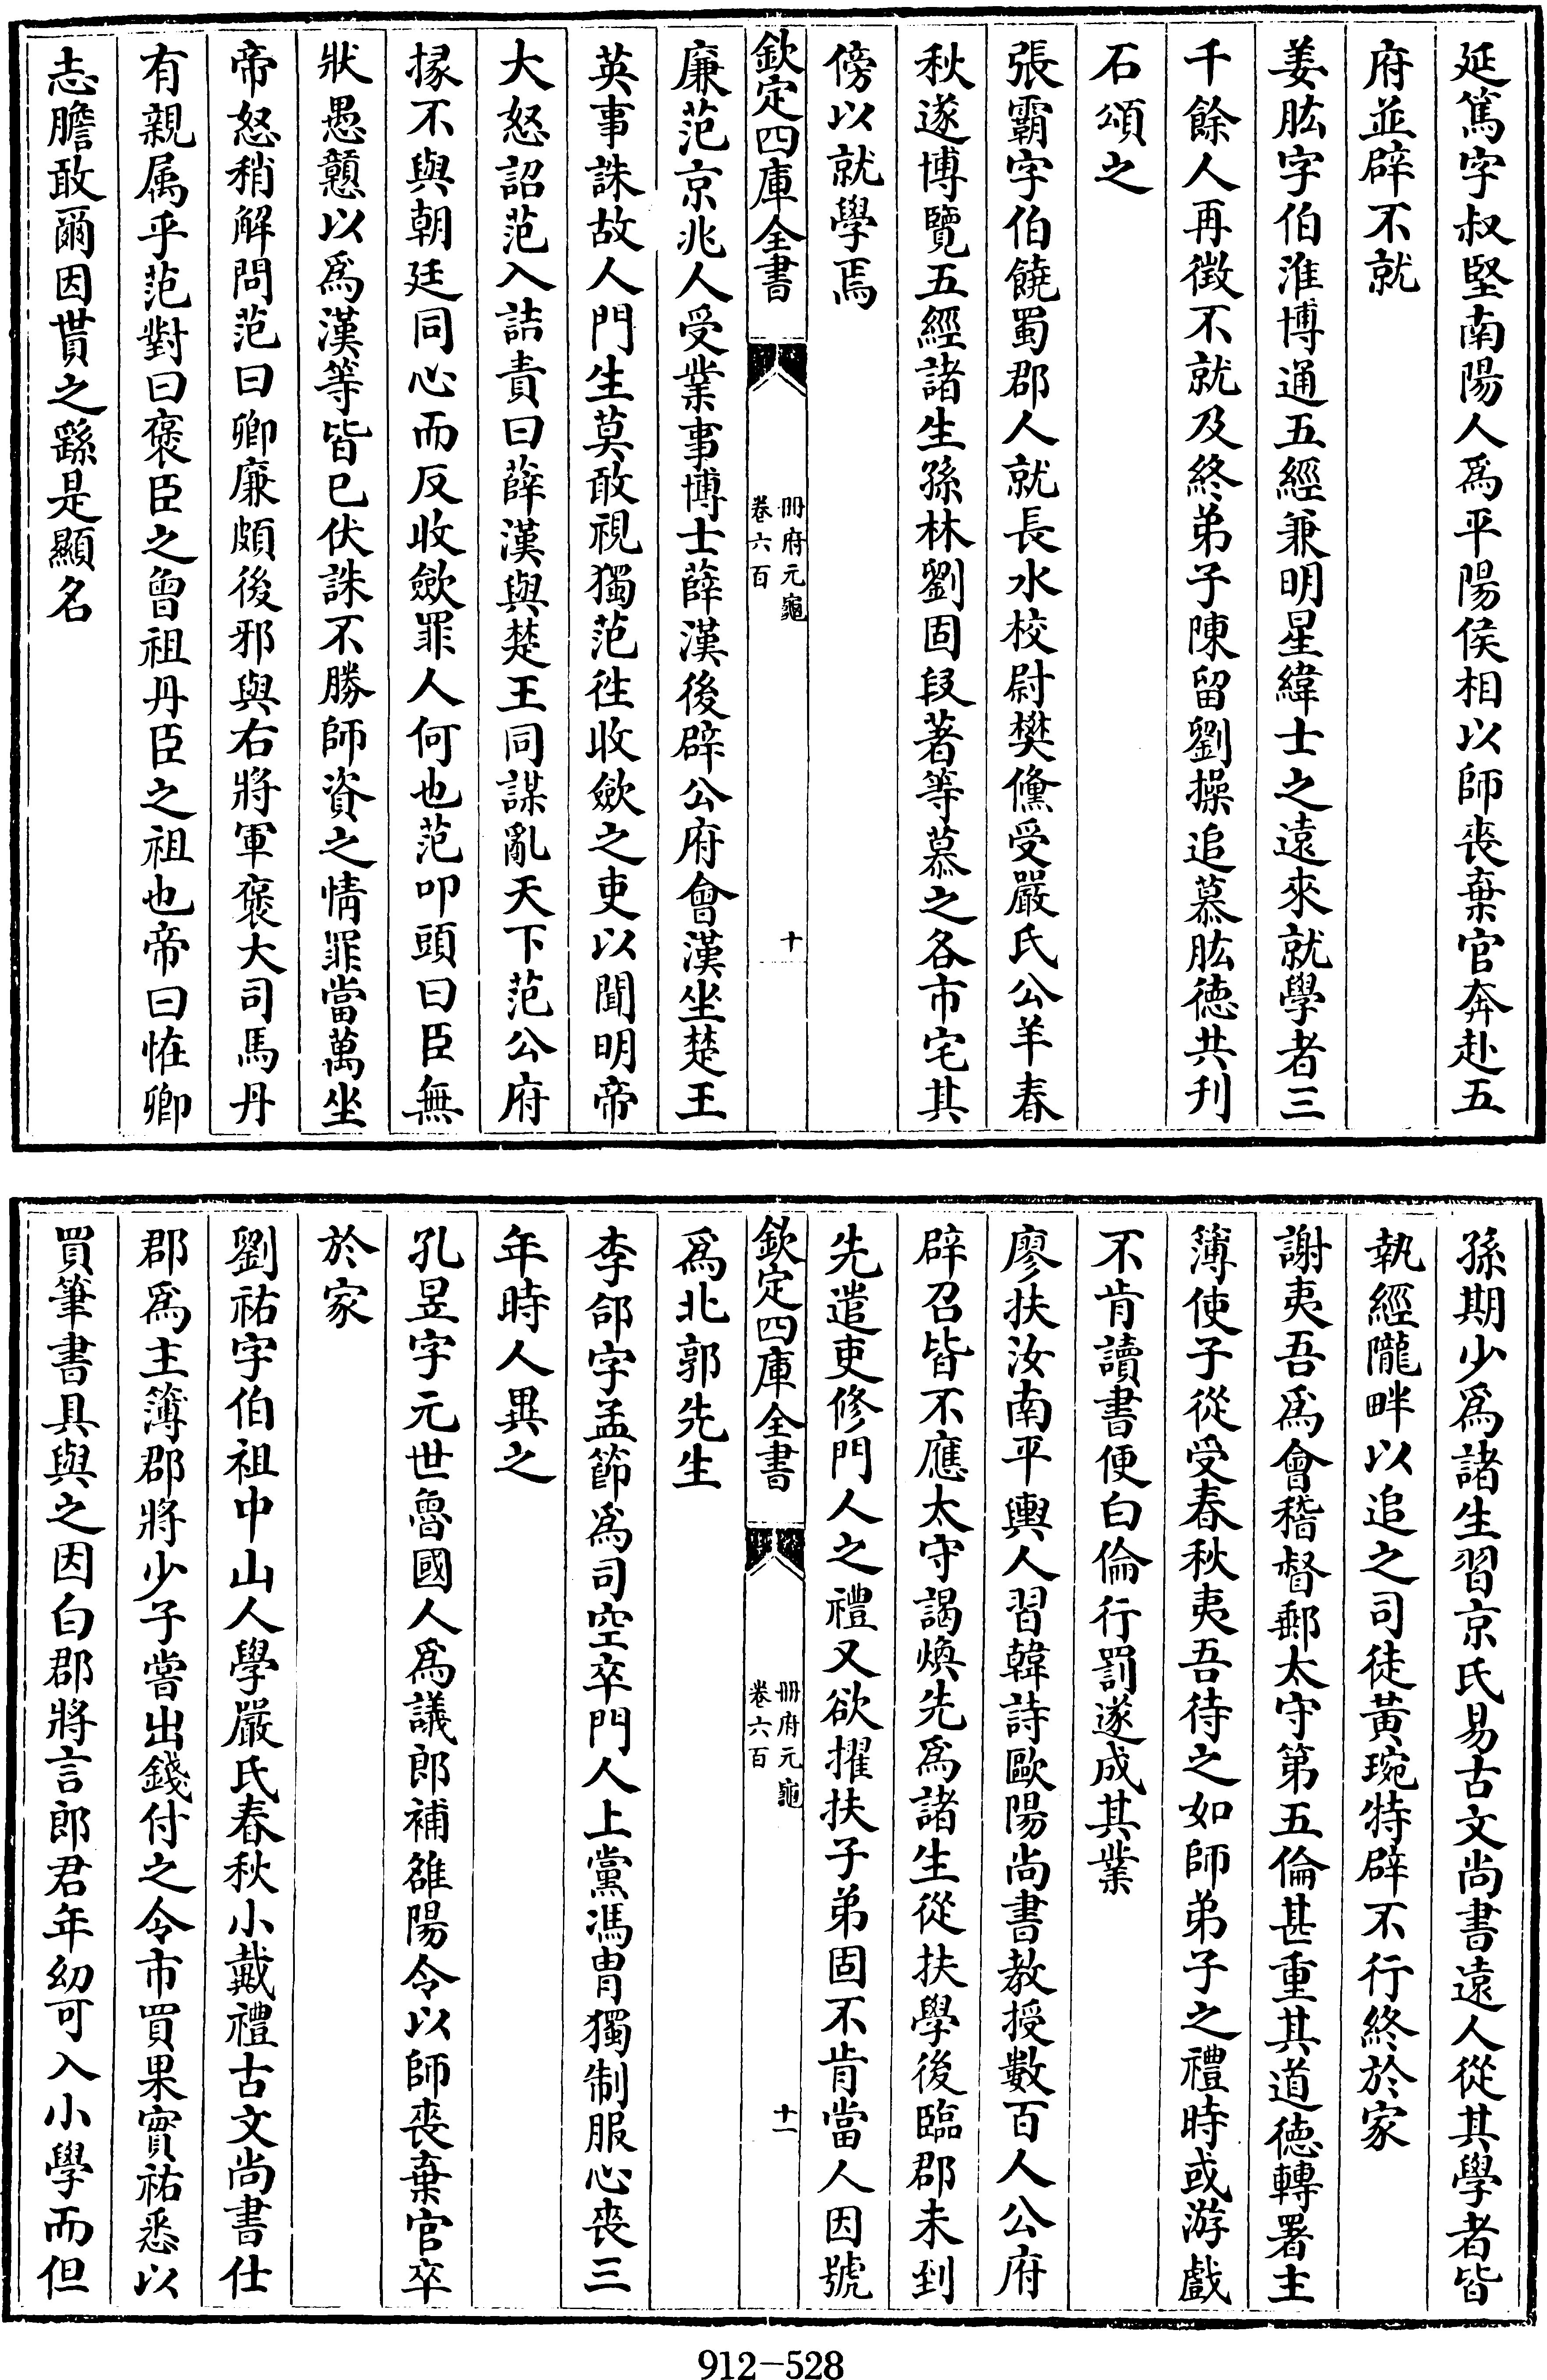 延篤字叔堅南陽人為平陽侯相以師喪棄官奔赴五
府並辟不就
姜肱字伯淮博通五經兼明星緯士之遠來就學者三
千餘人再徵不就及終弟子陳留劉操追慕肱徳共刋
石頌之
張霸字伯饒蜀郡人就長水校尉樊儵受嚴氏公羊春
秋遂博覽五經諸生孫林劉固段著等慕之各市宅其
傍以就學焉
欽定四庫全書
冊府元龜
卷六百
十
廉范京兆人受業事博士薛漢後辟公府會漢坐楚王
英事誅故人門生莫敢視獨范徃收歛之吏以聞明帝
大怒詔范入詰責曰薛漢與楚王同謀亂天下范公府
掾不與朝廷同心而反收歛罪人何也范叩頭曰臣無
狀愚戇以為漢等皆已伏誅不勝師資之情罪當萬坐
帝怒稍解問范曰卿廉頗後邪與右將軍褒大司馬丹
有親属乎范對曰褒臣之曾祖丹臣之祖也帝曰恠卿
志膽敢爾因貰之繇是顯名
孫期少為諸生習京氏易古文尚書遠人從其學者皆
執經隴畔以追之司徒黃琬特辟不行終於家
謝夷吾為會稽督郵太守第五倫甚重其道徳轉署主
簿使子從受春秋夷吾待之如師弟子之禮時或游戲
不肯讀書便白倫行罰遂成其業
廖扶汝南平輿人習韓詩歐陽尚書教授數百人公府
辟召皆不應太守謁煥先為諸生從扶學後臨郡未到
先遣吏修門人之禮又欲擢扶子弟固不肯當人因號
欽定四庫全書
冊府元龜
卷六百
十一
為北郭先生
李郃字孟節為司空卒門人上黨馮胄獨制服心喪三
年時人異之
孔昱字元世魯國人為議郎補雒陽令以師喪棄官卒
於家
劉祐字伯祖中山人學嚴氏春秋小戴禮古文尚書仕
郡為主簿郡將少子嘗出錢付之令市買果實祐悉以
買筆書具與之因白郡將言郎君年幼可入小學而但
912-528